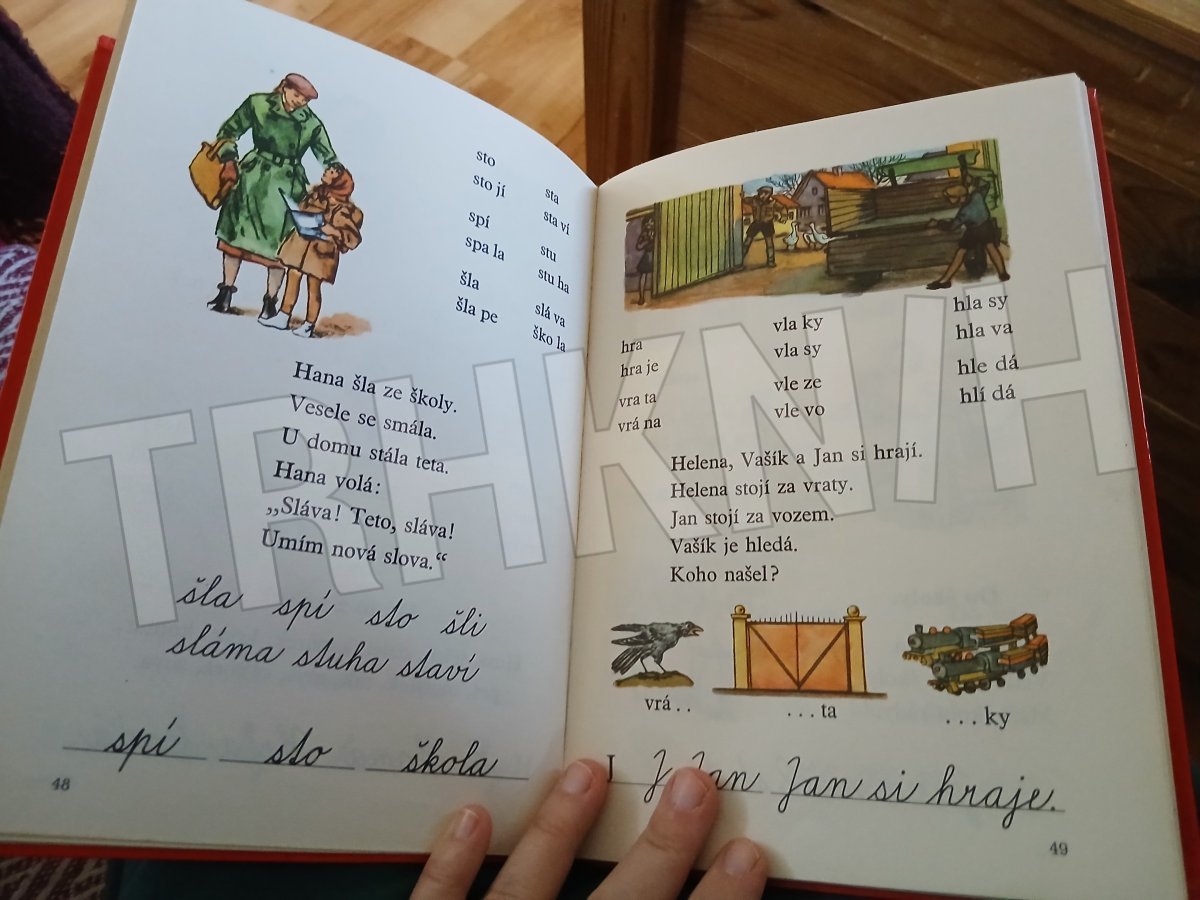 sto
sto jí
spí
spa la
šla
šla pe
sta
sta ví
stu
stu ha
slá va
ško la
Hana šla ze školy.
Vesele se smála.
U domu stála teta.
Hana volá:
„Sláva! Teto, sláva!
Umím nová slova.“
šla spí sto šli
sláma stuha staví
spí sto škola
48
hra
hra je
vra ta
vrá na
vla ky
vla sy
vle ze
vle vo
hla sy
hla va
hle dá
hlí dá
Helena, Vašík a Jan si hrají.
Helena stojí za vraty.
Jan stojí za vozem.
Vašík je hledá.
Koho našel?
vrá . .
. . . ta
. . . ky
J J Jan Jan si hraje.
49
TRHKNIH